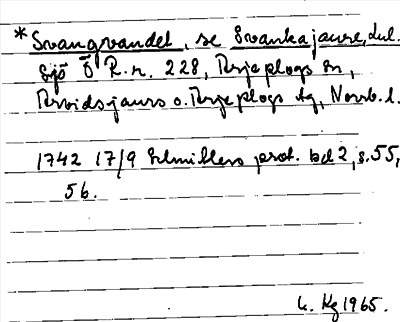 *Svangvandet, se Svankajaure, Lul.
sjö Ö R.r. 228, Arjeplogs sn,
Arvidsjaurs o. Arjeplogs tg, Norrb. l.
1742 17/9 Schnitlers prot. bd 2, s. 55,
56.
K. Hg 1965.